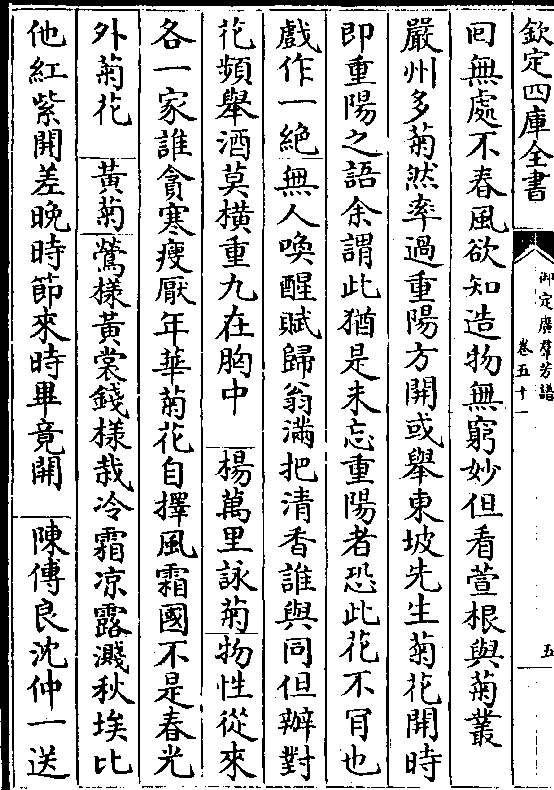 欽定四庫全書
御定廣群芳譜
卷五十一
五
囘無處不春風欲知造物無窮妙但看萱根與菊叢
嚴州多菊然率過重陽方開或舉東坡先生菊花開時
即重陽之語余謂此猶是未忘重陽者恐此花不肎也
戲作一絶無人喚醒賦歸翁滿把清香誰與同但辦對
花頻舉酒莫橫重九在胸中 楊萬里詠菊物性從來
各一家誰貪寒瘦厭年華菊花自擇風霜國不是春光
外菊花 黃菊鶯樣黃裳錢樣裁冷霜凉露濺秋埃比
他紅紫開差晚時節來時畢竟開 陳傅良沈仲一送